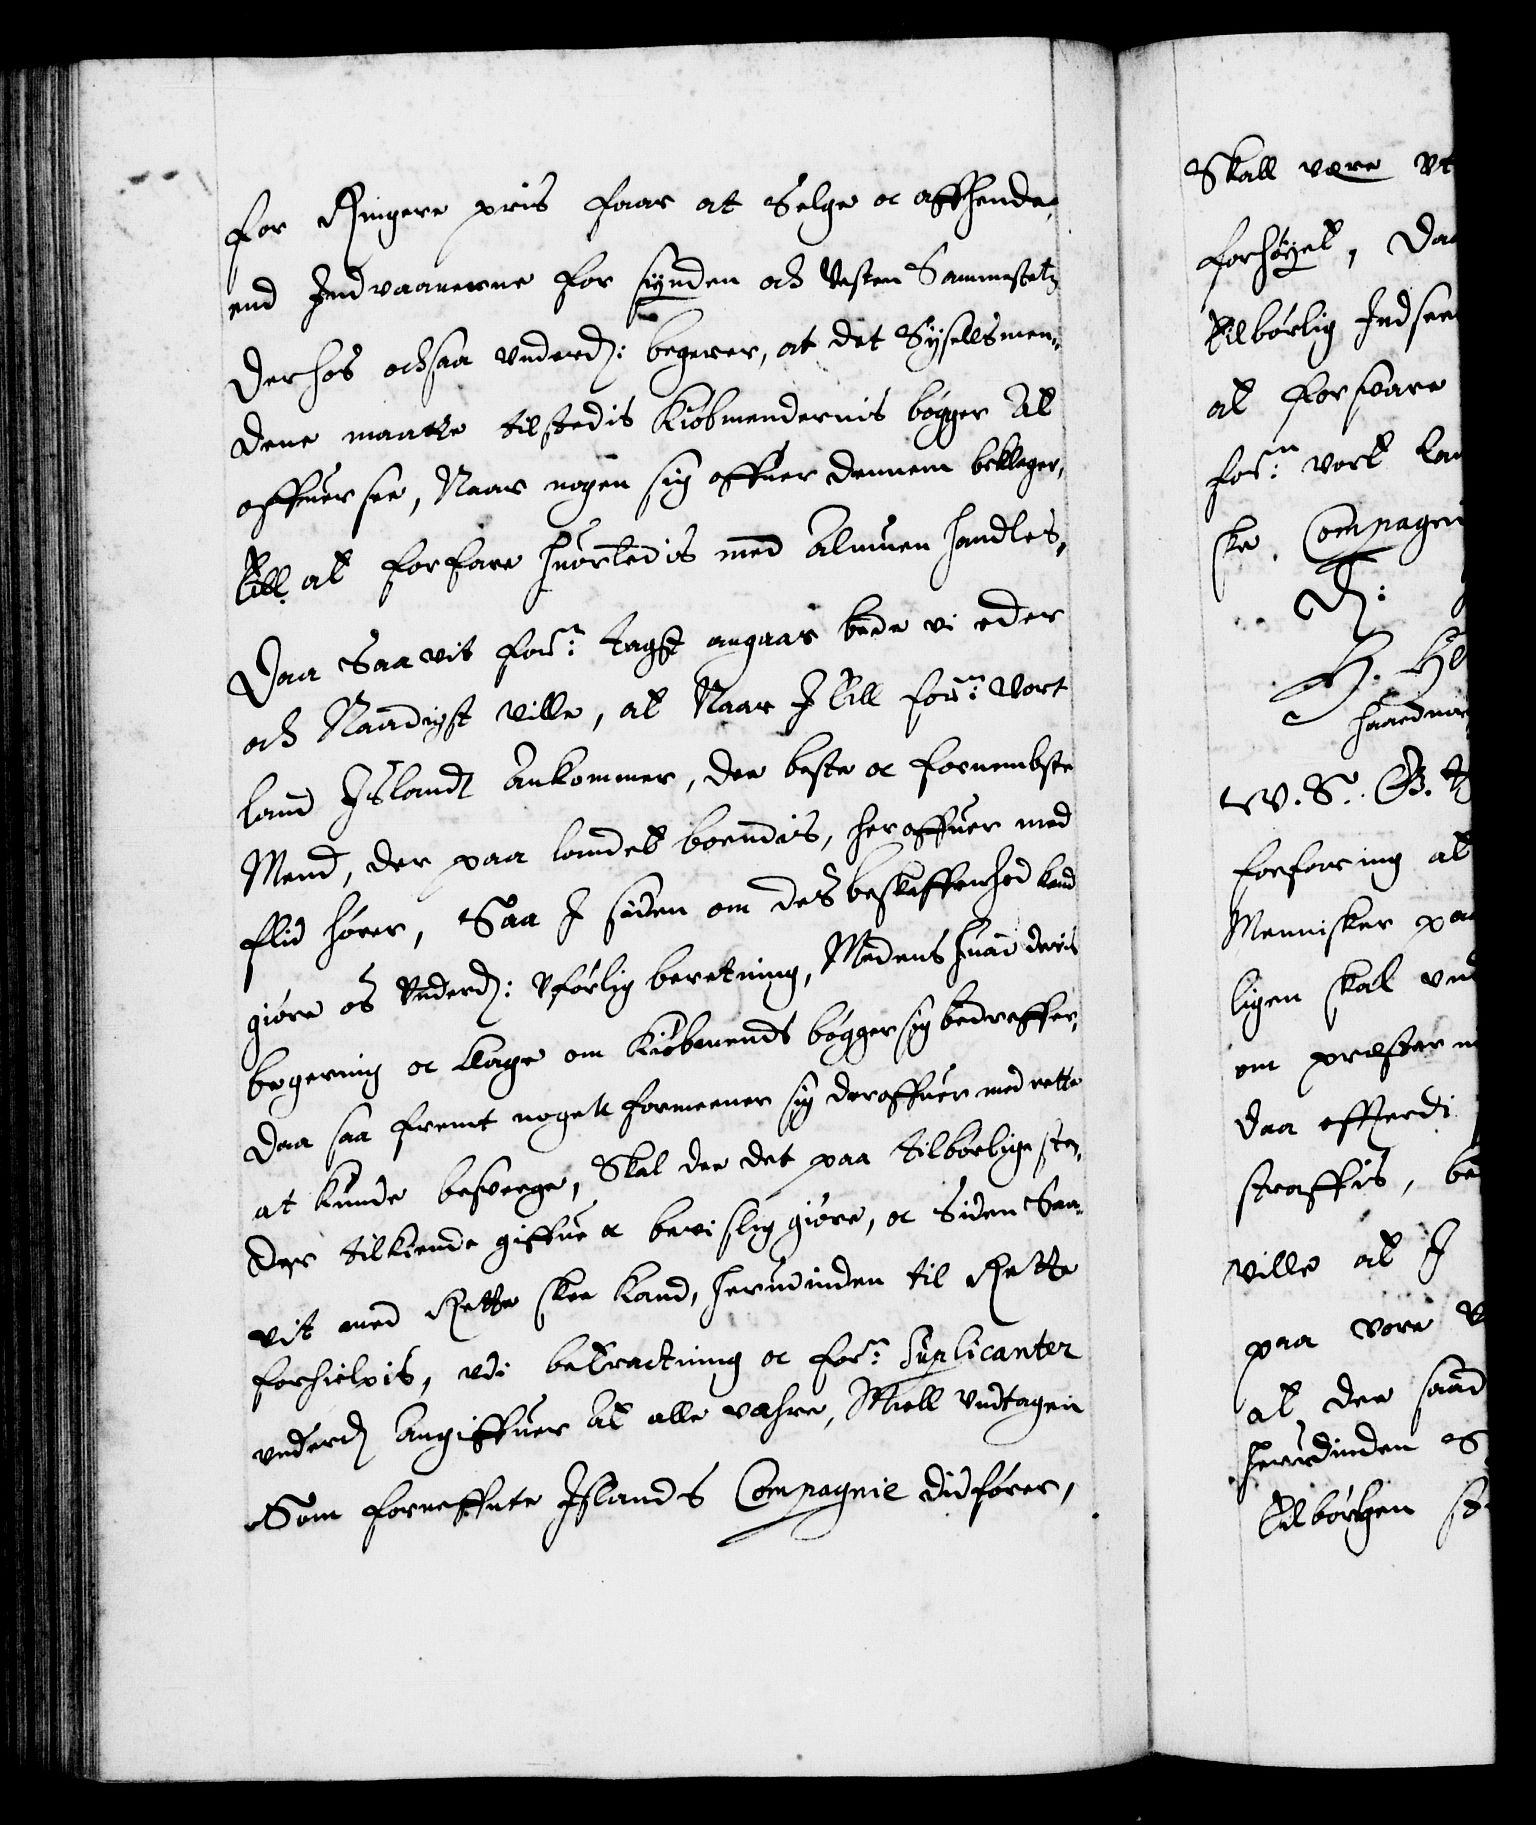 for Ringere pris faar at Selge oc affhende,
end Indvaanerne for synden och Vesten Sammestetz
Derhos ochsaa underd: begerer, at det Sysellsmen-
dene maatte tilstedis Kiøbmendernis bøgger At
offuersee, Naar nogen sig offuer dennem beklager,
till at forfare huorledis med Almuen handles,
Daa Saavit for:ne tagst angaar bede vi eder
och Naadigst ville, at Naar I till for:ne Vort
land Island Ankommer, de beste oc fornembste
Mend, der paa landet boendis, heroffuer med
flid hører, Saa I siden om des beskaffenhed kand
giøre os Underd: Vførlig beretning, Medens huad deris
begering oc klage om Kiøbmends bøgger sig bedreffer,
Daa saa fremt nogen formeener sig deroffuer med rette
at kunde besverge, Skal de det paa tilbørlige ste-
der tilkiende giffue oc bevislig giøre, oc Siden Saa-
vit med Rette skee kand, herudinden til Rette
forhielpis, udi betractning oc for:ne Suplicanter
underd Angiffuer At alle vahre, Miell undtagen
Som forneffnte Islands Compagnie didfører,
Skall være Vt
forhøyet, Daa
tilbørlig Indsee
at forsvare
for:ne vort lan
ske Compagni
D:
H. He
haand
W. S. G. T
forfaring at
Mennisker paa
ligen skal und
om præster
daa effterdi
straffis, be
ville at I
paa vore
at de saad
herudinden
tilbørligen